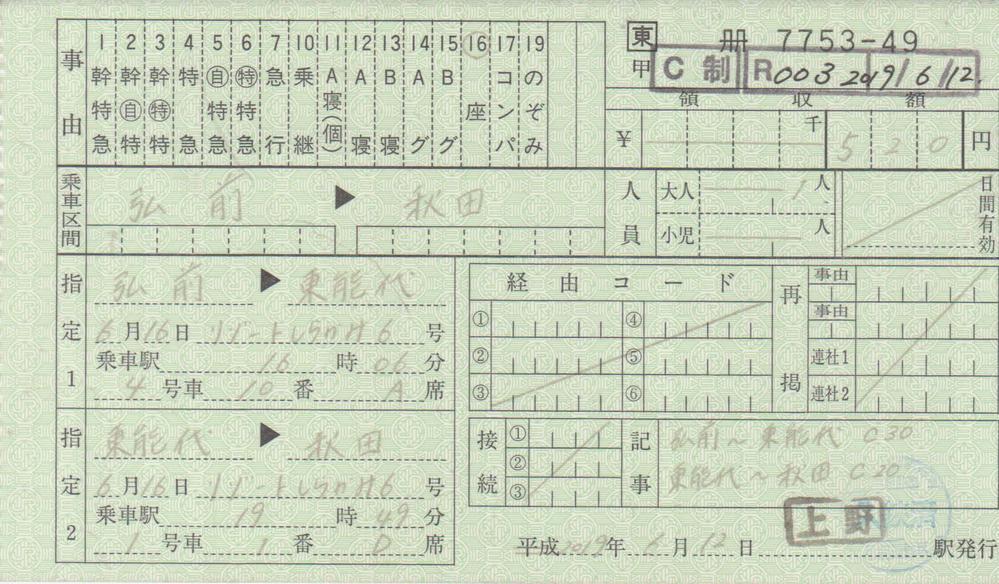 事由
1 幹特急
2 幹自特
3 幹特特
4 特急
5 自特急
6 特特急
7 急行
10 乗継
11 A寝(個)
12 A寝
13 B寝
14 Aグ
15 Bグ
16 座
17 コンパ
19 のぞみ
東 冊 7753-49
甲 C制 R003 2019/6/12.
領収額
¥ 千 520 円
乗車区間 弘前 ▶ 秋田
人員 大人 1人
小児 人
日間有効
指定1 弘前 ▶ 東能代
6月16日 リゾートしらかみ6号
乗車駅 16時06分
4号車 10番 A席
指定2 東能代 ▶ 秋田
6月16日 リゾートしらかみ6号
乗車駅 19時49分
1号車 1番 D席
経由コード
① ④
② ⑤
③ ⑥
再掲 事由
事由
連社1
連社2
接続 ①
②
③
記事 弘前〜東能代 C30
東能代〜秋田 C20
上野
平成2019年6月12日 駅発行